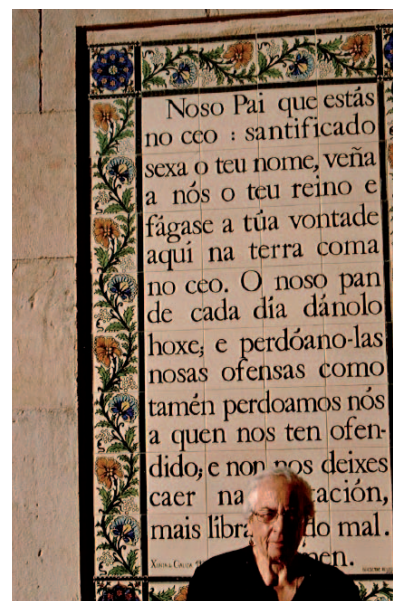 Noso Pai que estás
no ceo : santificado
sexa o teu nome, veña
a nós o teu reino e
fágase a túa vontade
aquí na terra coma
no ceo. O noso pan
de cada día dánolo
hoxe; e perdóano-las
nosas ofensas como
tamén perdoamos nós
a quen nos ten ofen-
dido; e non nos deixes
caer na tación,
mais libra do mal.
men.